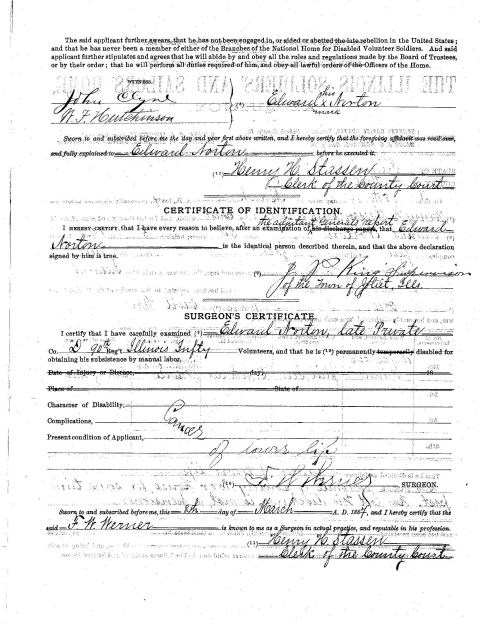 The said applicant further swears, that he has not been engaged in, or aided or abetted the late rebellion in the United States;
and that he has never been a member of either of the Branches of the National Home for Disabled Volunteer Soldiers. And said
applicant further stipulates and agrees that he will abide by and obey all the rules and regulations made by the Board of Trustees,
or by their order; that he will perform all duties required of him, and obey all lawful orders of the Officers of the Home.
WITNESS.
John Clyne
W. F. Hutchinson
his
Edward x Norton
mark
Sworn to and subscribed before me the day and year first above written, and I hereby certify that the foregoing affidavit was read over,
and fully explained to Edward Norton before he executed it.
Henry H. Stassen
Clerk of the County Court
CERTIFICATE OF IDENTIFICATION.
the adjutant Generals report
I HEREBY CERTIFY, that I have every reason to believe, after an examination of his discharge papers, that Edward
Norton is the identical person described therein, and that the above declaration
signed by him is true.
King Supervisor
of the Town of Joliet, Ills.
SURGEON'S CERTIFICATE.
I certify that I have carefully examined Edward Norton, late Private
Co. "D" 90th Reg't Illinois Infty Volunteers, and that he is permanently temporarily disabled for
obtaining his subsistence by manual labor.
Date of Injury or Disease, day, 18
Place of State of
Character of Disability,
Complications, Cancer
Present condition of Applicant,
of lower lip
F. W. Werner SURGEON.
Sworn to and subscribed before me, this 8th day of March A. D. 188, and I hereby certify that the
said F. W. Werner is known to me as a Surgeon in actual practice, and reputable in his profession.
Henry H. Stassen
Clerk of the County Court